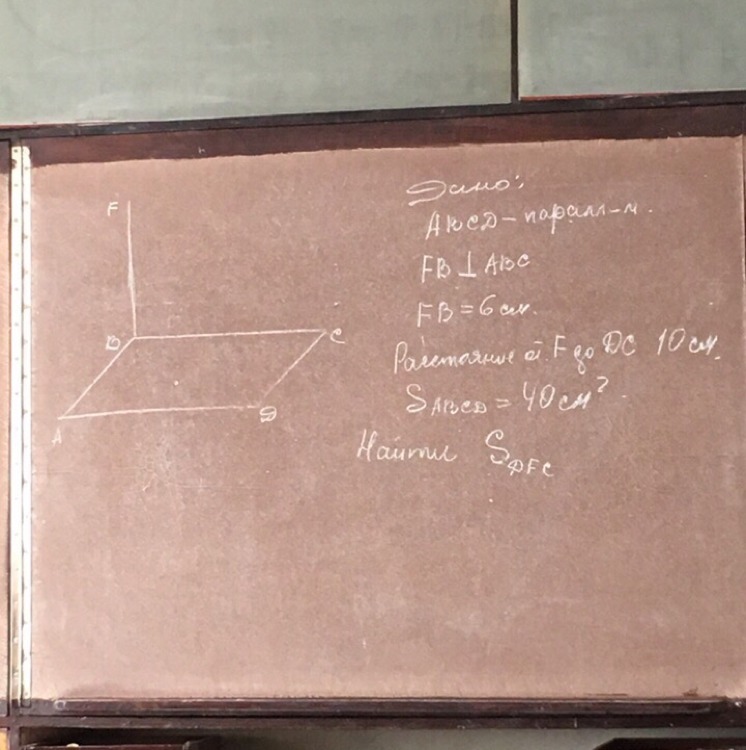 F
B
C
A
D
Дано:
ABCD - паралл-м.
FB ⊥ ABC
FB = 6 см.
Расстояние от F до DC 10 см.
S ABCD = 40 см²
Найти S DFC